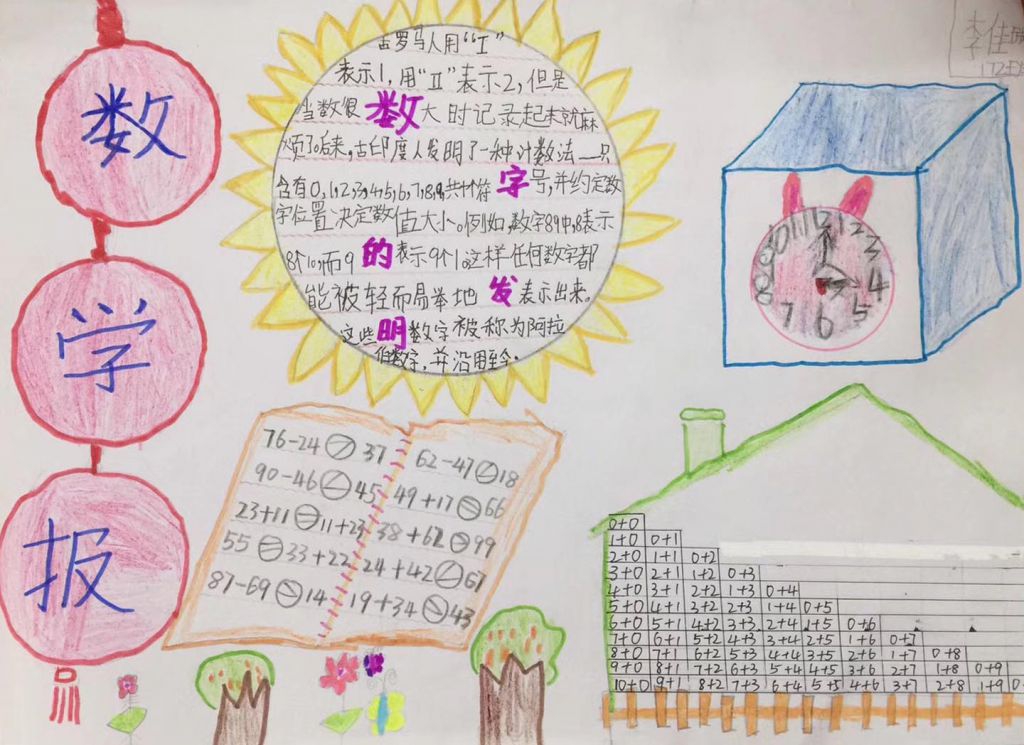 数
学
报
古罗马人用“I”
表示1,用“Ⅱ”表示2,但是
当数很数大时记录起来就麻
烦了。后来,古印度人发明了一种计数法——只
含有0,1,2,3,4,5,6,7,8,9,共十个符字号,并约定数
字位置决定数值大小。例如,数字89中,8表示
8个10,而9的表示9个1。这样任何数字都
能被轻而易举地发表示出来。
这些明数字被称为阿拉
伯数字,并沿用至今。
李佳
12
11 1
10 2
9 3
8 4
7 5
6
76-24>37
90-46<45
23+11=11+23
55=33+22
87-69>14
62-47<18
49+17=66
38+62>99
24+42<67
19+34>43
0+0
1+0 0+1
2+0 1+1 0+2
3+0 2+1 1+2 0+3
4+0 3+1 2+2 1+3 0+4
5+0 4+1 3+2 2+3 1+4 0+5
6+0 5+1 4+2 3+3 2+4 1+5 0+6
7+0 6+1 5+2 4+3 3+4 2+5 1+6 0+7
8+0 7+1 6+2 5+3 4+4 3+5 2+6 1+7 0+8
9+0 8+1 7+2 6+3 5+4 4+5 3+6 2+7 1+8 0+9
10+0 9+1 8+2 7+3 6+4 5+5 4+6 3+7 2+8 1+9